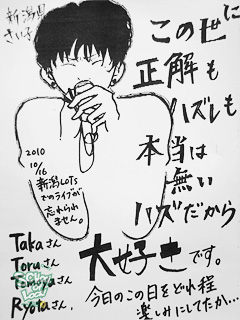 新潟県
この世に
正解も
ハズレも
本当は
無い
ハズだから
2010
10/16
新潟LOTS
でのライブが
忘れられ
ません。
Takaさん
Toruさん
Tomoyaさん
Ryotaさん、
大好きです。
今日のこの日をどれ程
楽しみにしてたか…